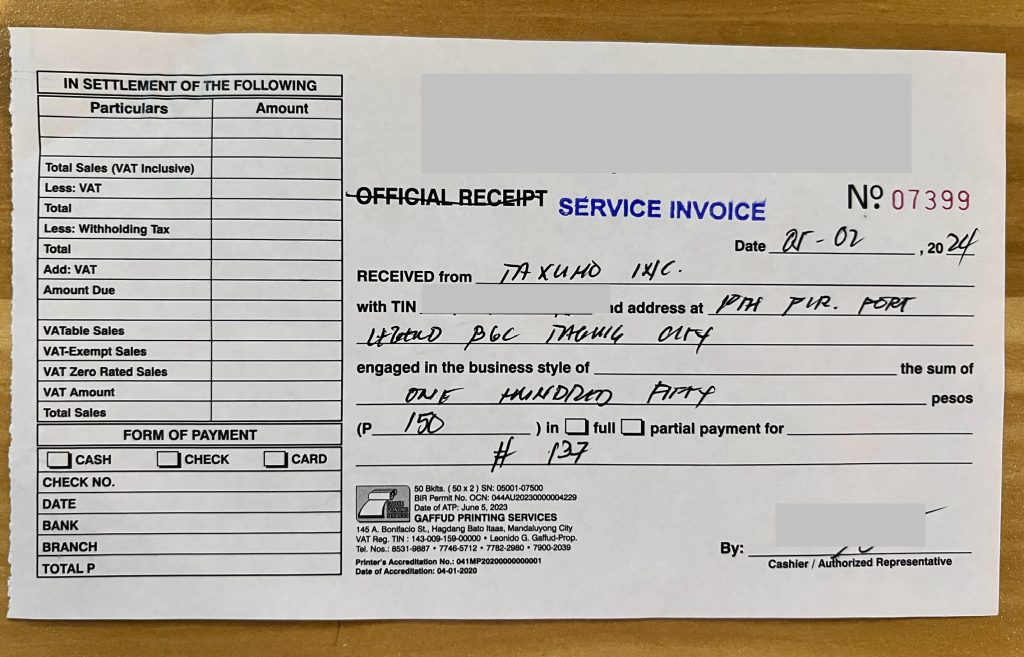 IN SETTLEMENT OF THE FOLLOWING
Particulars Amount
Total Sales (VAT Inclusive)
Less: VAT
Total
Less: Withholding Tax
Total
Add: VAT
Amount Due
VATable Sales
VAT-Exempt Sales
VAT Zero Rated Sales
VAT Amount
Total Sales
FORM OF PAYMENT
CASH CHECK CARD
CHECK NO.
DATE
BANK
BRANCH
TOTAL P
OFFICIAL RECEIPT SERVICE INVOICE Nº 07399
Date 25-02, 2024
RECEIVED from TAXUMO INC.
with TIN nd address at FLR. FORT
LEGEND BGC TAGUIG CITY
engaged in the business style of the sum of
ONE HUNDRED FIFTY pesos
(P 150 ) in full partial payment for
# 137
50 Bklts. (50 x 2) SN: 05001-07500
BIR Permit No. OCN: 044AU20230000004229
Date of ATP: June 5, 2023
GAFFUD PRINTING SERVICES
145 A. Bonifacio St., Hagdang Bato Itaas, Mandaluyong City
VAT Reg. TIN : 143-009-159-00000 • Leonido G. Gaffud-Prop.
Tel. Nos.: 8531-9887 • 7746-5712 • 7782-2980 • 7900-2039
Printer's Accreditation No.: 041MP20200000000001
Date of Accreditation: 04-01-2020
By:
Cashier / Authorized Representative